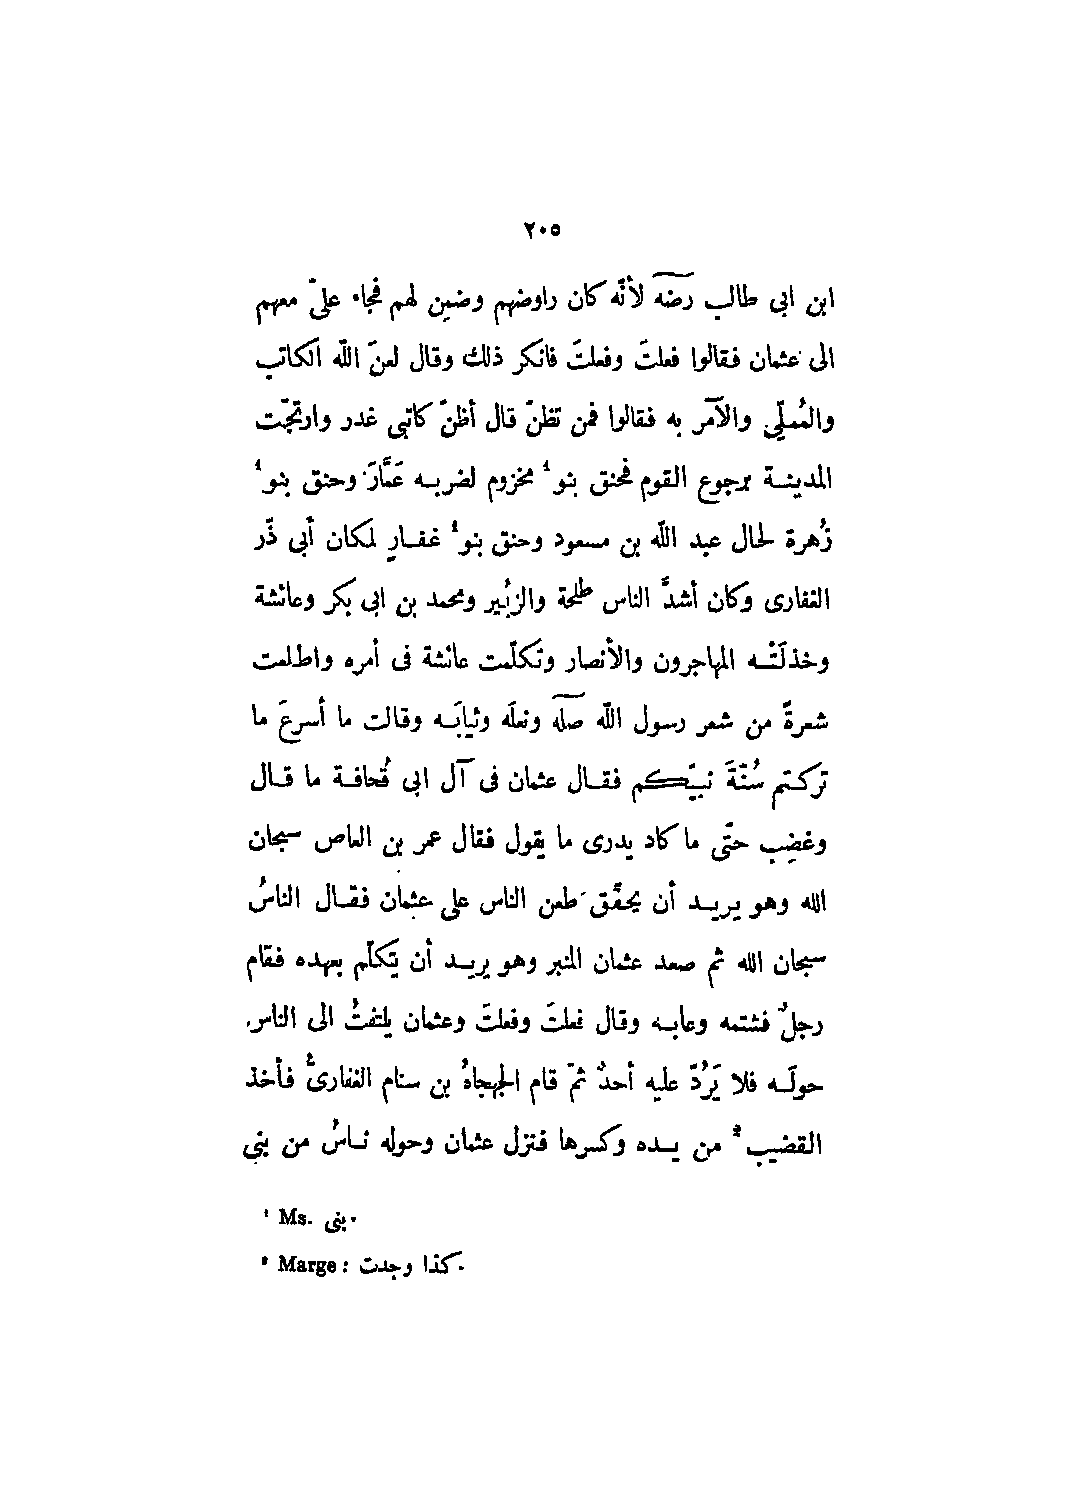 ٢٠٥
ابن ابى طالب رضّه لأنّه كان راوضهم وضمِن لهم فجاء علىّ معهم
الى عثمان فقالوا فعلتَ وفعلتَ فانكر ذلك وقال لعنَ اللّه الكاتب
والمُملّى والآمر به فقالوا فمن تظنّ قال أظنّ كاتبى غدر وارتجّت
المدينة برجوع القوم فحنق بنو¹ مخزوم لضربه عَمَّارَ وحنق بنو¹
زُهرة لحال عبد اللّه بن مسعود وحنق بنو¹ غفارِ لمكان أبى ذّر
الغفارى وكان أشدَّ الناس طلحة والزُبير ومحمد بن ابى بكر وعائشة
وخذلَتْه المهاجرون والأنصار وتكلّمت عائشة فى أمره واطلعت
شعرةً من شعر رسول اللّه صلّه ونعلَه وثيابَه وقالت ما أسرعَ ما
تركتم سُنّةَ نبيّكم فقال عثمان فى آل ابى قُحافة ما قال
وغضِب حتّى ما كاد يدرى ما يقول فقال عمر بن العاص سبحان
الله وهو يريد أن يحقّق طعن الناس على عثمان فقال الناسُ
سبحان الله ثم صعد عثمان المنبر وهو يريد أن يتكلّم بعهده فقام
رجلٌ فشتمه وعابه وقال فعلتَ وفعلتَ وعثمان يلتفتُ الى الناس
حولَه فلا يَرُدّ عليه أحدٌ ثمّ قام الجهجاهُ بن سنام الغفارىُّ فأخذ
القضيب² من يده وكسرها فنزل عثمان وحوله ناسٌ من بنى
¹ Ms. بنى.
² Marge : كذا وجدت.